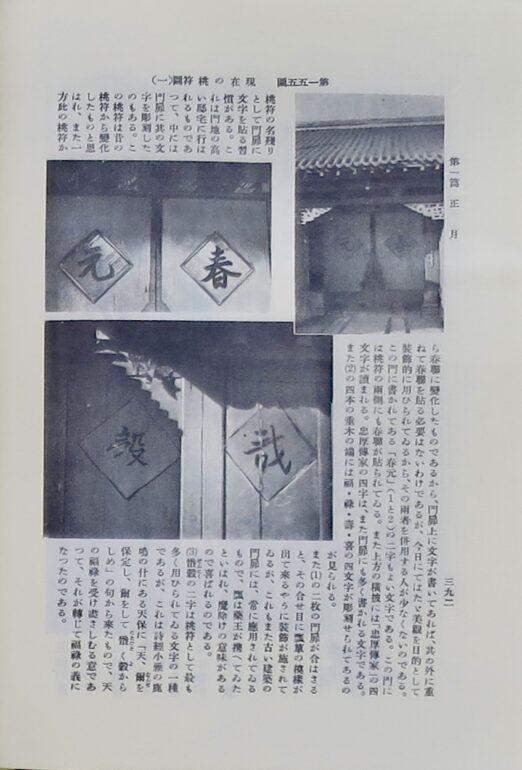 第一五五圖 現在の桃符圖(一)
第一篇 正月
三九二
桃符の名殘り
として門扉に
文字を貼る習
慣がある。こ
れは門地の高
い邸宅に行は
れるものであ
つて、中には
門扉に其の文
字を彫刻した
のもある。こ
の桃符は昔の
桃符から變化
したものと思
はれ、また一
方此の桃符か
春
元
春
元
戩
穀
ら春聯に變化したものであるから、門扉上に文字が書いてあれば、其の外に重
ねて春聯を貼る必要はないわけであるが、今日にてはたゞ美觀を目的として
裝飾的に用ひられてゐるから、その兩者を併用する人が少なくないのである。
この門に書かれてある「春元」(1と2)の二字もよい文字である。この門に
は桃符の兩側にも春聯が貼られてゐる。また上方の橫披には「忠厚傳家」の四
文字が讀まれる。忠厚傳家の四字は、また門扉にも多く書かれる文字である。
また(2)の四本の垂木の端には福・祿・壽・喜の四文字が彫刻せられてあるの
が見られる。
また(1)の二枚の門扉が合はさる
と、その合せ目に瓢草の模樣が
出て來るやうに裝飾が施されて
ゐるが、これもまた古い建築の
門扉には、常に應用されてゐる
もので、瓢は藥王が携へてゐた
といはれ、魔除けの意味がある
ので喜ばれるのである。
(3)戩穀の二字は桃符として最も
多く用ひられてゐる文字の一種
であるが、これは詩經小雅の鹿
鳴の什にある天保に「天、爾を
保定し、爾をして戩く穀から
しめ」の句から來たもので、天
の福祿を受け盡さしむる意であ
つて、それが轉じて福祿の義に
なつたのである。